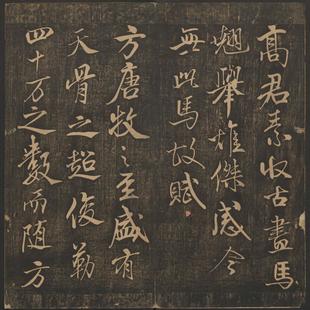 高君素收古畫馬
翘舉雄傑感今
無此馬故賦
方唐牧之至盛有
天骨之超俊勒
四十万之數而随方